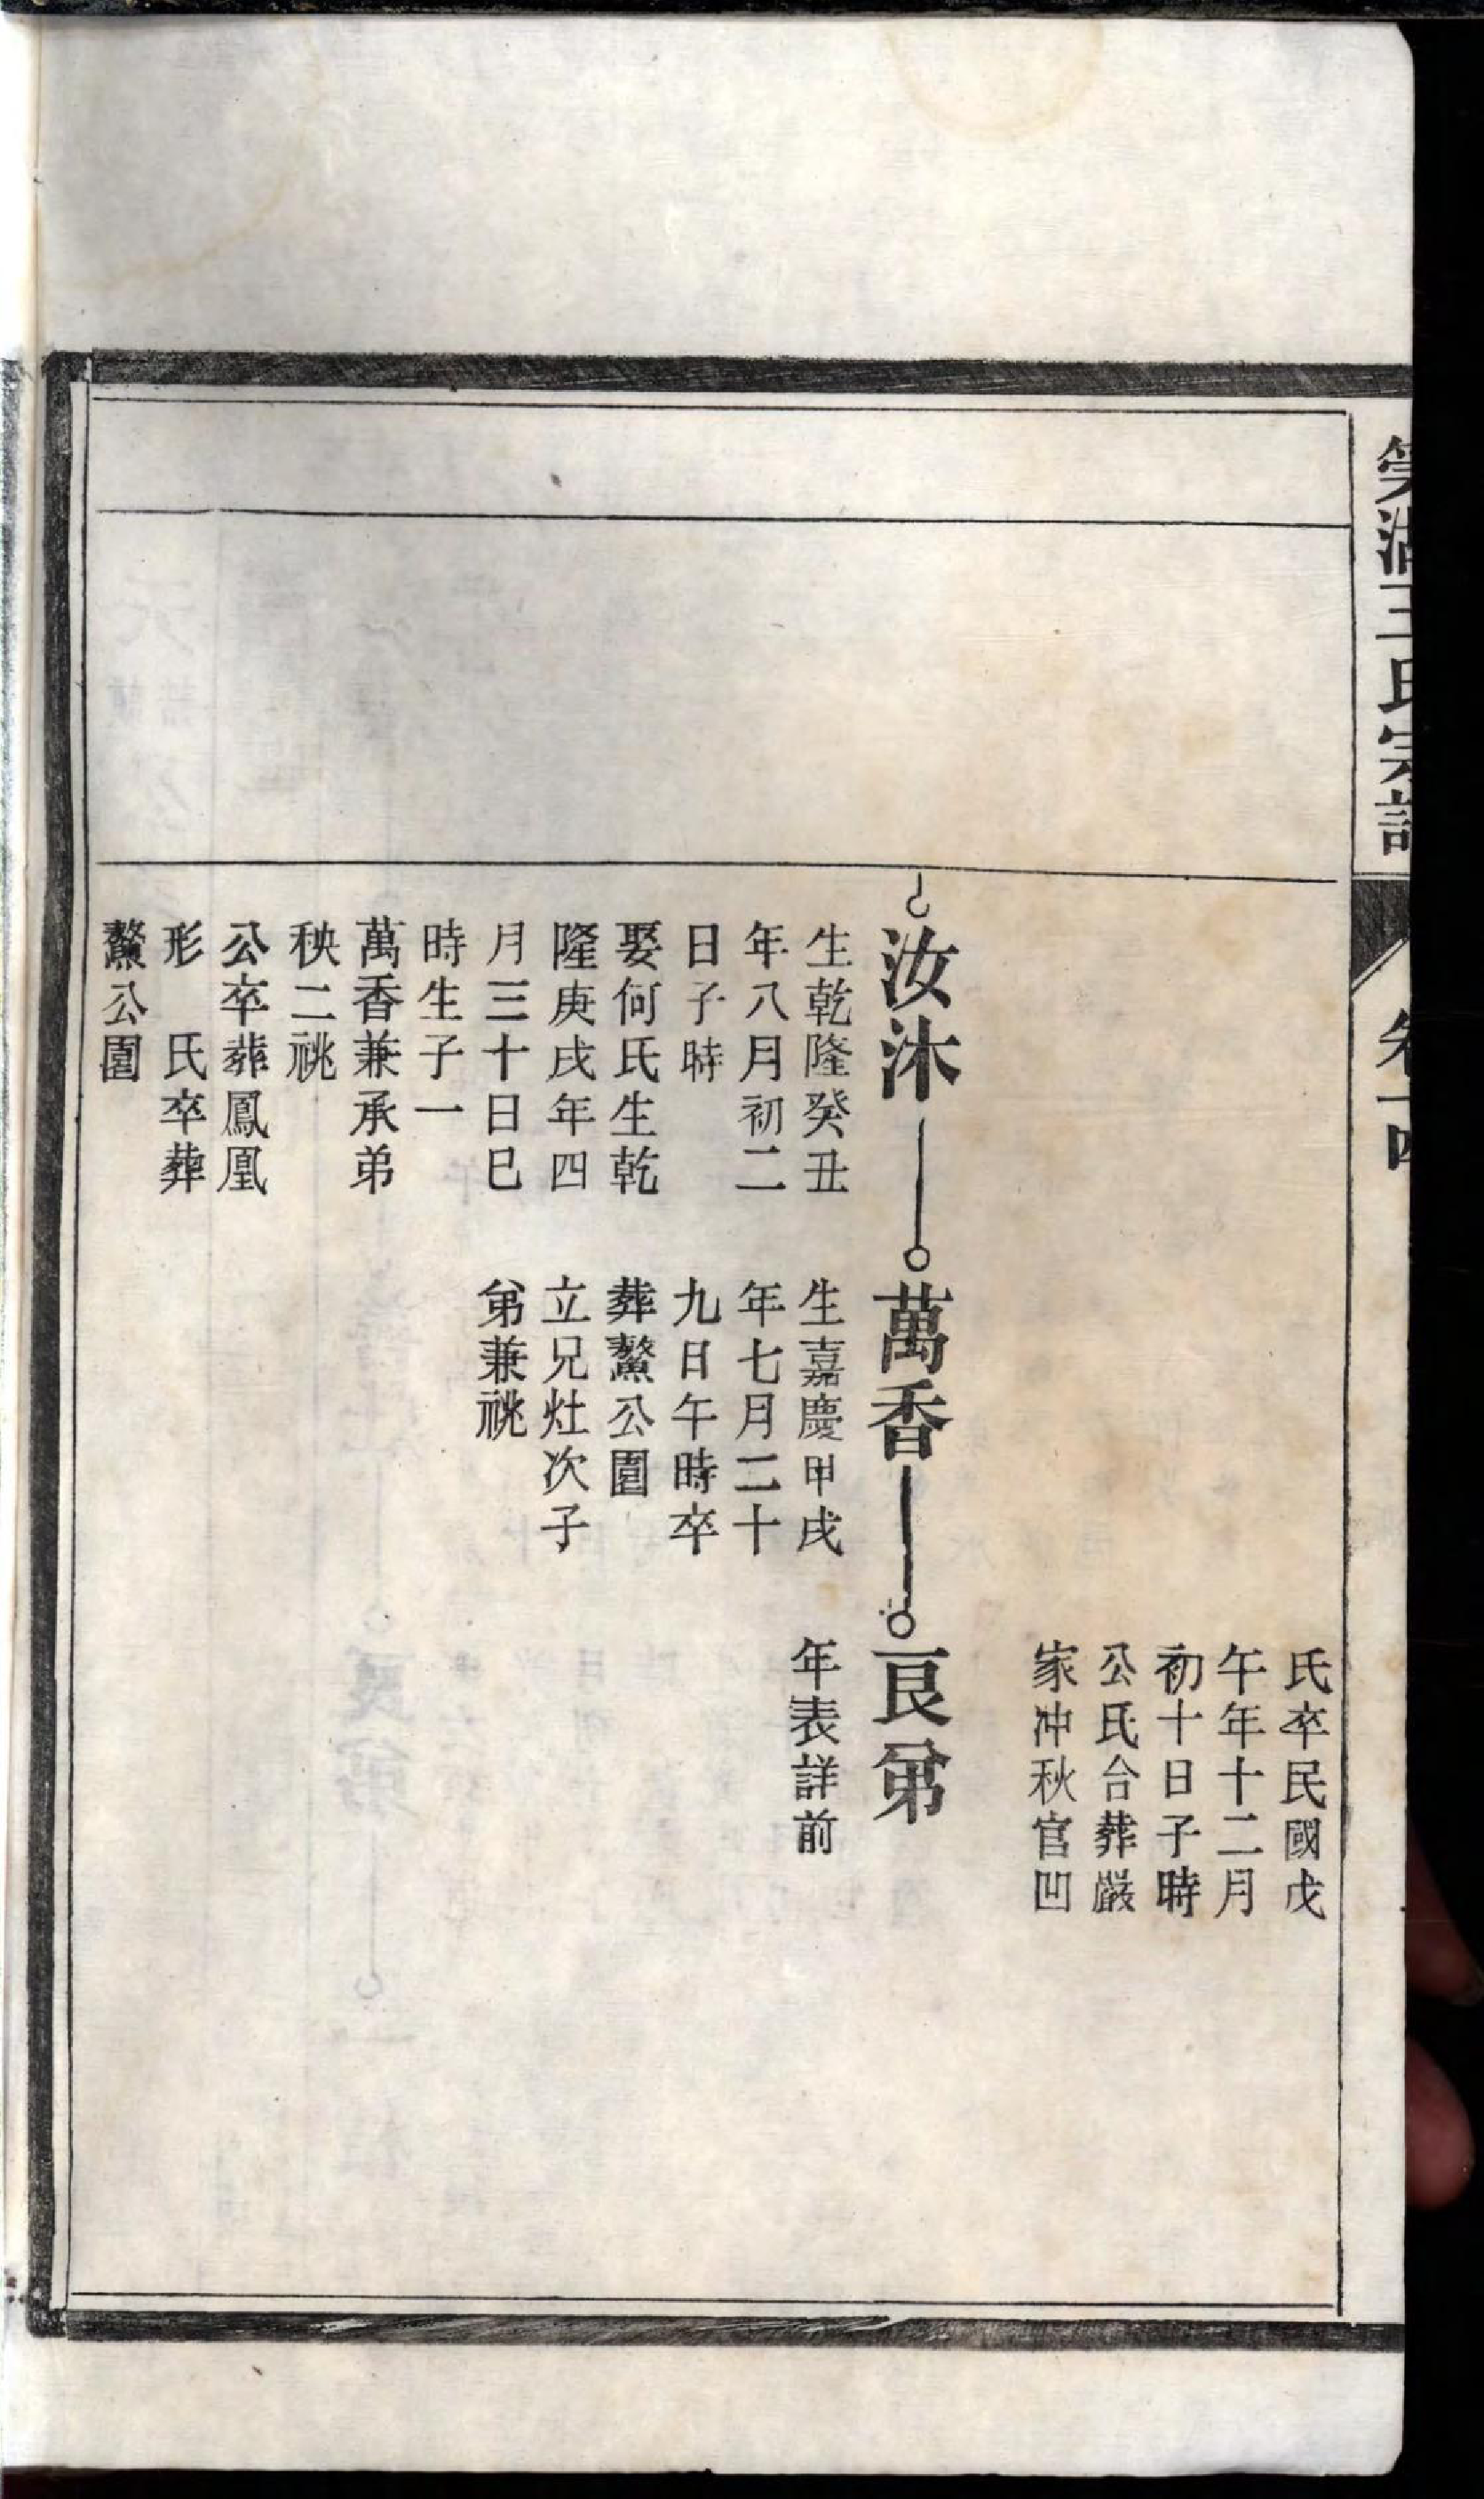 氏卒民國戊
午年十二月
初十日子時
公氏合葬嚴
家冲秋官凹
汝沐
生乾隆癸丑
年八月初二
日子時
娶何氏生乾
隆庚戌年四
月三十日巳
時生子一
萬香兼承弟
秧二祧
公卒葬鳳凰
形　氏卒葬
鰲公園
萬香
生嘉慶甲戌
年七月二十
九日午時卒
葬鰲公園
立兄灶次子
弟兼祧
艮弟
年表詳前